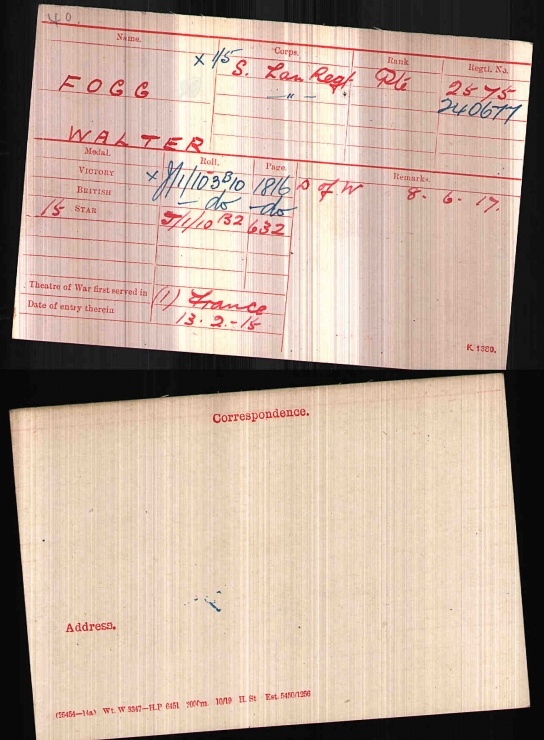 40.
Name. Corps. Rank Regtl. No.
× 1/5 S. Lan Regt. Pte 2575
FOGG — " — 240677
WALTER
Medal. Roll. Page. Remarks.
VICTORY × J/1/103B10 1816 D of W 8. 6. 17.
BRITISH – do – do
15 STAR J/1/10 B2 632
Theatre of War first served in (1) France
Date of entry therein 13. 2. - 15
K. 1380.
Correspondence.
Address.
(25454—14a) Wt. W 3347—H.P. 6451 700m. 10/19 H. St Est. 5450/1256